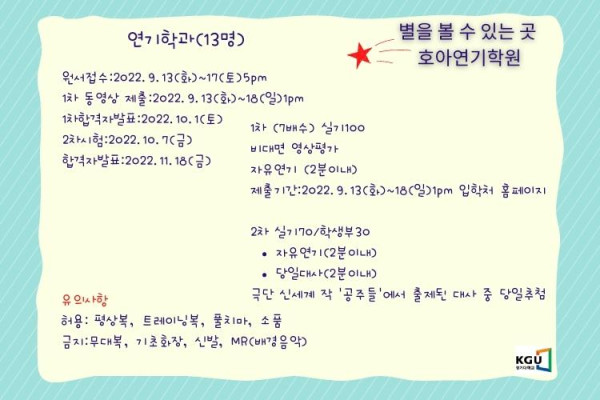 연기학과(13명)
별을 볼 수 있는 곳
호아연기학원
원서접수:2022. 9.13(화)~17(토)5pm
1차 동영상 제출:2022. 9.13(화)~18(일)1pm
1차합격자발표:2022.10.1(토)
2차시험:2022.10.7(금)
합격자발표:2022.11.18(금)
1차 (7배수) 실기100
비대면 영상평가
자유연기 (2분이내)
제출기간:2022.9.13(화)~18(일)1pm 입학처 홈페이지
2차 실기70/학생부30
• 자유연기(2분이내)
• 당일대사(2분이내)
극단 신세계 작 '공주들'에서 출제된 대사 중 당일추첨
유의사항
허용: 평상복, 트레이닝복, 풀치마, 소품
금지:무대복, 기초화장, 신발, MR(배경음악)
KGU
경기대학교